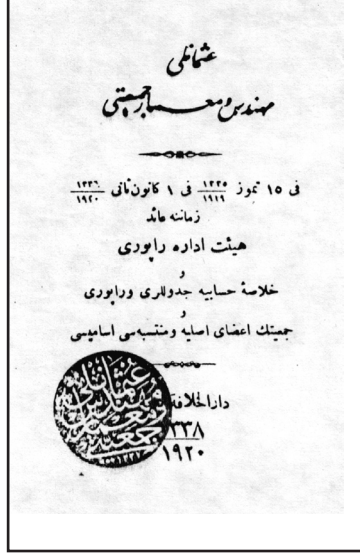 عثمانلی
مهندس و معمار جمعیتی
فی ١٥ تموز ١٣٣٥ / ١٩١٩ فی ١ کانون ثانی ١٣٣٦ / ١٩٢٠
زماننه عائد
هیئت اداره راپوری
و
خلاصهٔ حسابیه جدوللری و راپوری
و
جمعیتك اعضای اصلیه و منتسبه‌سی اسامیسی
دارالخلافه
٣٣٨
١٩٢٠